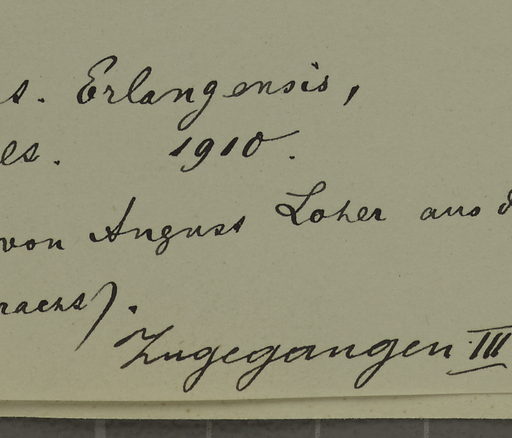 s. Erlangensis,
es. 1910.
von August Loher aus d
racht).
Zugegangen III